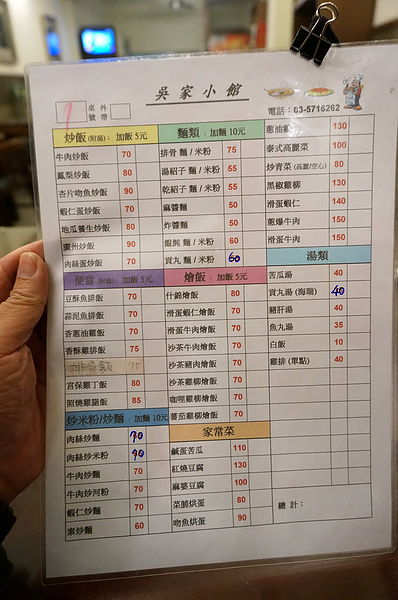 吳家小館
1 桌號 外帶
電話：03-5716262
炒飯(附湯)：加飯 5元
牛肉炒飯 70
鳳梨炒飯 80
杏片吻魚炒飯 90
蝦仁蛋炒飯 70
地瓜養生炒飯 80
廣州炒飯 90
肉絲蛋炒飯 70
便當(附湯)：加飯 5元
豆酥魚排飯 70
蒜泥魚排飯 70
香蔥油雞飯 70
香酥雞排飯 75
排骨飯 75
宮保雞丁飯 80
照燒雞腿飯 85
炒米粉/炒麵：加麵 10元
肉絲炒麵 70
肉絲炒米粉 70
牛肉炒麵 70
牛肉炒河粉 70
蝦仁炒麵 70
素炒麵 60
麵類：加麵 10元
排骨 麵 / 米粉 75
湯紹子 麵 / 米粉 55
乾紹子 麵 / 米粉 55
麻醬麵 50
炸醬麵 50
餛飩 麵 / 米粉 60
貢丸 麵 / 米粉 60
燴飯：加飯 5元
什錦燴飯 80
滑蛋蝦仁燴飯 70
滑蛋牛肉燴飯 70
沙茶牛肉燴飯 70
沙茶豬肉燴飯 70
沙茶雞柳燴飯 70
咖哩雞柳燴飯 70
蕃茄雞柳燴飯 70
家常菜
鹹蛋苦瓜 110
紅燒豆腐 130
麻婆豆腐 100
菜脯烘蛋 80
吻魚烘蛋 90
蔥油雞 130
泰式高麗菜 100
炒青菜 (高麗/空心) 80
黑椒雞柳 130
滑蛋蝦仁 140
蔥爆牛肉 150
滑蛋牛肉 150
湯類
苦瓜湯 40
貢丸湯 (海瑞) 40
豬肝湯 40
魚丸湯 35
白飯 10
雞排 (單點) 40
總計：